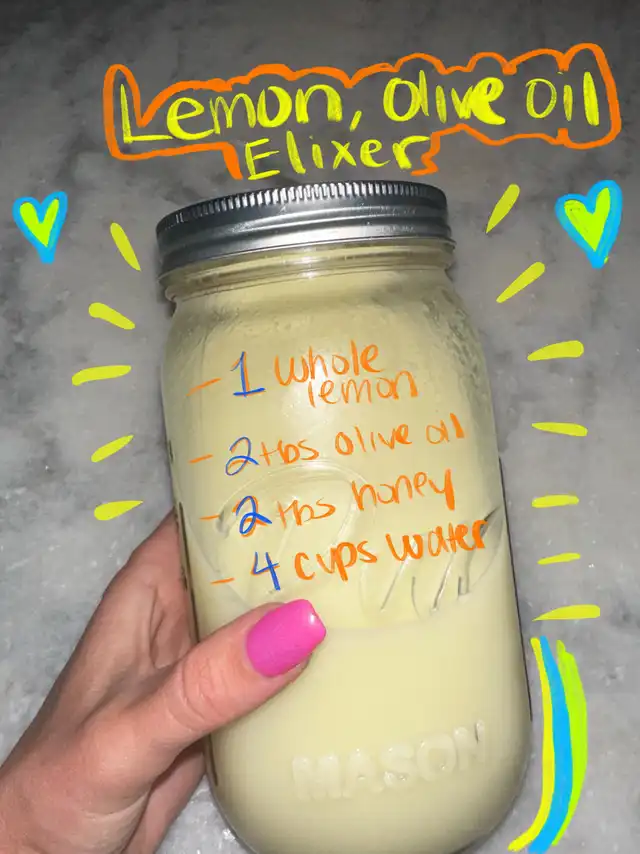 Lemon, olive oil
Elixer
- 1 whole
lemon
- 2 tbs olive oil
- 2 tbs honey
- 4 cups water
MASON